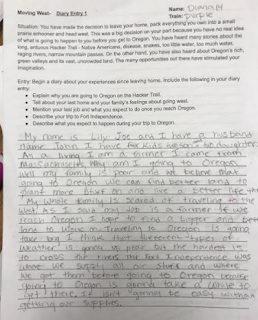 Moving West- Diary Entry 1
Name:
Train: Purple
Situation: You have made the decision to leave your home, pack everything you own into a small
prairie schooner and head west. This was a big decision on your part because you have no real idea
of what is going to happen to you before you get to Oregon. You have heard many stories about the
long, arduous Hacker Trail - Native Americans, disease, snakes, too little water, too much water,
raging rivers, narrow mountain passes. On the other hand, you have also heard about Oregon's rich,
green valleys and its vast, uncrowded land. The many opportunities out there have stimulated your
imagination.
Entry: Begin a diary about your experiences since leaving home. Include the following in your diary
entry:
• Explain why you are going to Oregon on the Hacker Trail.
• Tell about your last home and your family's feelings about going west.
• Mention your last job and what you expect to do once you reach Oregon.
• Describe your trip to Fort Independence.
• Describe what you expect to happen during your trip to Oregon.
My name is Lily Joe and I have a husband
name John I have for kids
As a living I am a farmer I come from
Massachusetts Why am I going to Oregon
well my family is poor and we believe that
going to Oregon we can find better land to
plant more stuff on and have better life
My whole family is scared of traveling to the
West. As I said my job is a farmer if we
reach Oregon I hope to find a bigger and better
land to work on. Traveling to Oregon is going
take long I think that different types of
weather is gonna be
to cross the rivers the Fort Independence was
where we
we got them before going to Oregon because
going to Oregon is gonna take a while to
get there. It isn't gonna be easy without
getting our supplies.